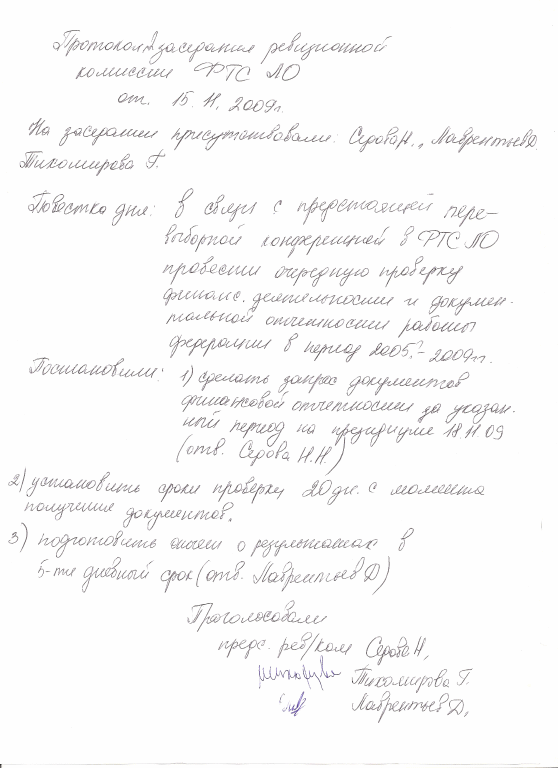 Протокол заседания ревизионной
комиссии ФТС ЛО
от. 15.11.2009г.
На заседании присутствовали: Серова Н., Лаврентьев Д.
Тихомирова Г.
Повестка дня: В связи с предстоящей пере-
выборной конференцией в ФТС ЛО
провести очередную проверку
финанс. деятельности и докумен-
тальной отчетности работы
федерации в период 2005г - 2009гг.
Постановили: 1) сделать запрос документов
финансовой отчетности за указан-
ный период на президиуме 18 11 09
(отв. Серова Н.Н)
2) установить сроки проверки 20 дн. с момента
получение документов.
3) подготовить отчет о результатах в
5-ти дневный срок (отв. Лаврентьев Д)
Проголосовали
предс. рев/ком Серова Н,
Тихомирова Г.
Лаврентьев Д,